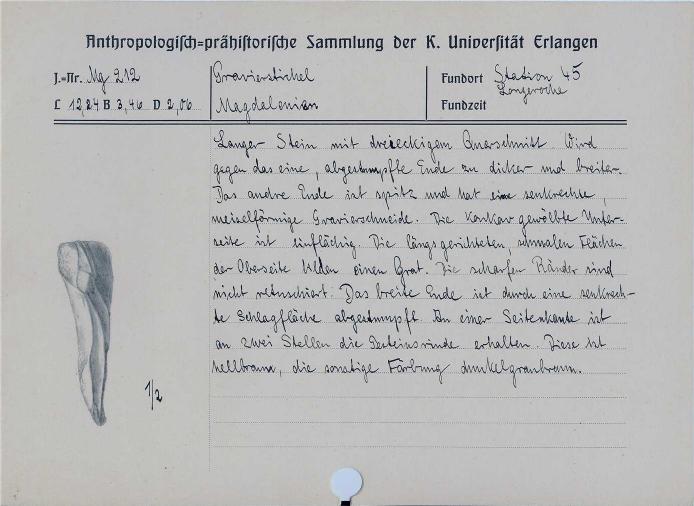 Anthropologiſch=prähiſtoriſche Sammlung der K. Univerſität Erlangen
J.=Nr. Mg 212
Gravierstichel
Fundort Station 45
Longeroche
L 12,84 B 3,46 D 2,06
Magdalenien
Fundzeit
Langer Stein mit dreieckigem Querschnitt. Wird
gegen das eine, abgestumpfte Ende zu dicker und breiter.
Das andre Ende ist spitz und hat eine senkrechte,
meizelförmige Gravierschneide. Die konkav gewölbte Unter-
seite ist einflächig. Die längsgerichteten, schmalen Flächen
der Oberseite bilden einen Grat. Die scharfen Ränder sind
nicht retuschiert. Das breite Ende ist durch eine senkrech-
te Schlagfläche abgestumpft. An einer Seitenkante ist
an zwei Stellen die Gesteinsrinde erhalten. Diese ist
hellbraun, die sonstige Färbung dunkelgraubraun.
1/2